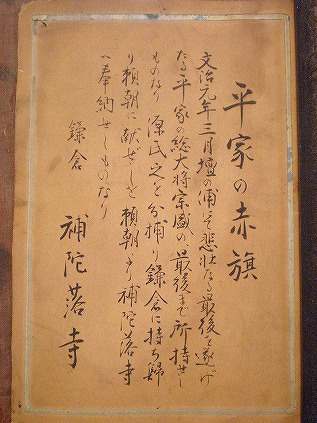 平家の赤旗
文治元年三月壇の浦で悲壮なる最後を遂げ
たる平家の総大将宗盛の最後まで所持せし
ものなり 源氏之を分捕り鎌倉に持ち帰
り頼朝に献ぜしを頼朝より補陀落寺
へ奉納せしものなり
鎌倉
補陀落寺